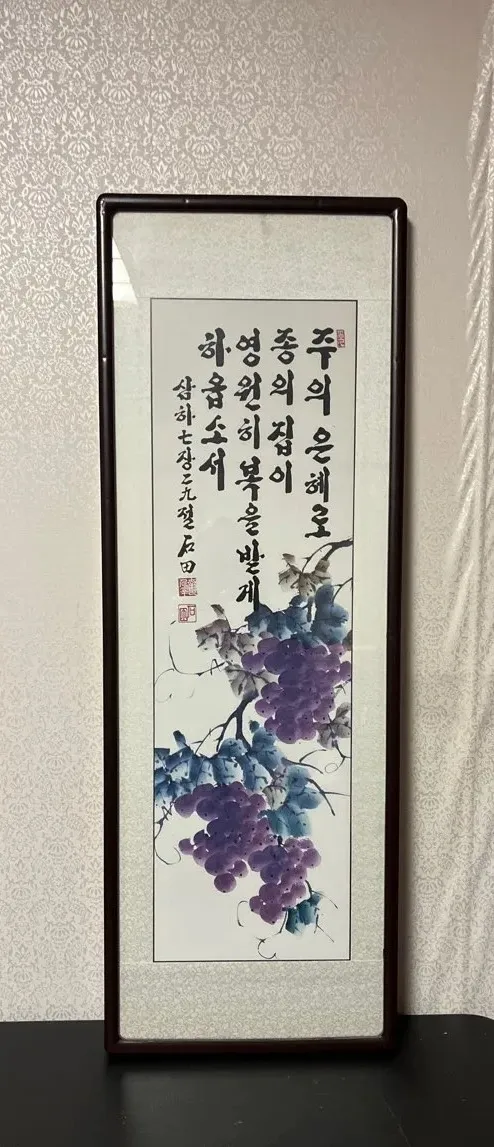 주의 은혜로
종의 집이
영원히 복을 받게
하옵소서
삼하 七장 二九절 石田